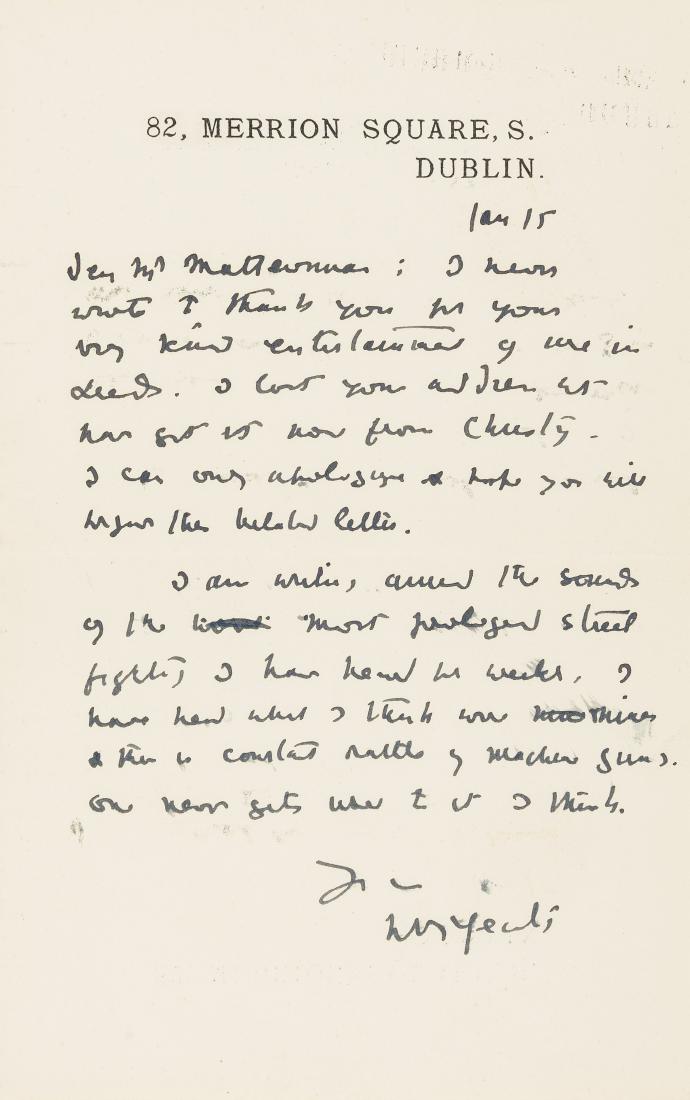 82, MERRION SQUARE, S.
DUBLIN.
Jan 15
Dear Mr Mattewman; I never
wrote to thank you for your
very kind entertainment of me in
Leeds. I lost your address but
have got it now from Christy.
I can only apologise & hope you will
forgive this belated letter.
I am writing amid the sounds
of the most prolonged street
fighting I have heard for weeks. I
have heard what I think were mines
& there is constant rattle of machine guns.
One never gets used to it I think.
Yrs
WB Yeats